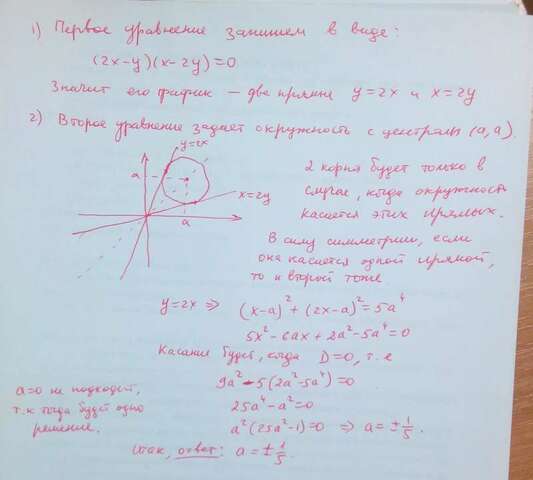 1) Первое уравнение запишем в виде:
(2x-y)(x-2y)=0
Значит его график — две прямые y=2x и x=2y
2) Второе уравнение задает окружность с центром (a,a).
y=2x
a
x=2y
a
2 корня будет только в
случае, когда окружность
касается этих прямых.
В силу симметрии, если
она касается одной прямой,
то и второй тоже
y=2x ⇒ (x-a)²+(2x-a)²=5a⁴
5x²-6ax+2a²-5a⁴=0
Касание будет, когда D=0, т.е
9a²-5(2a²-5a⁴)=0
25a⁴-a²=0
a²(25a²-1)=0 ⇒ a=±1/5.
a=0 не подходит,
т.к тогда будет одно
решение.
Итак, ответ: a=±1/5.